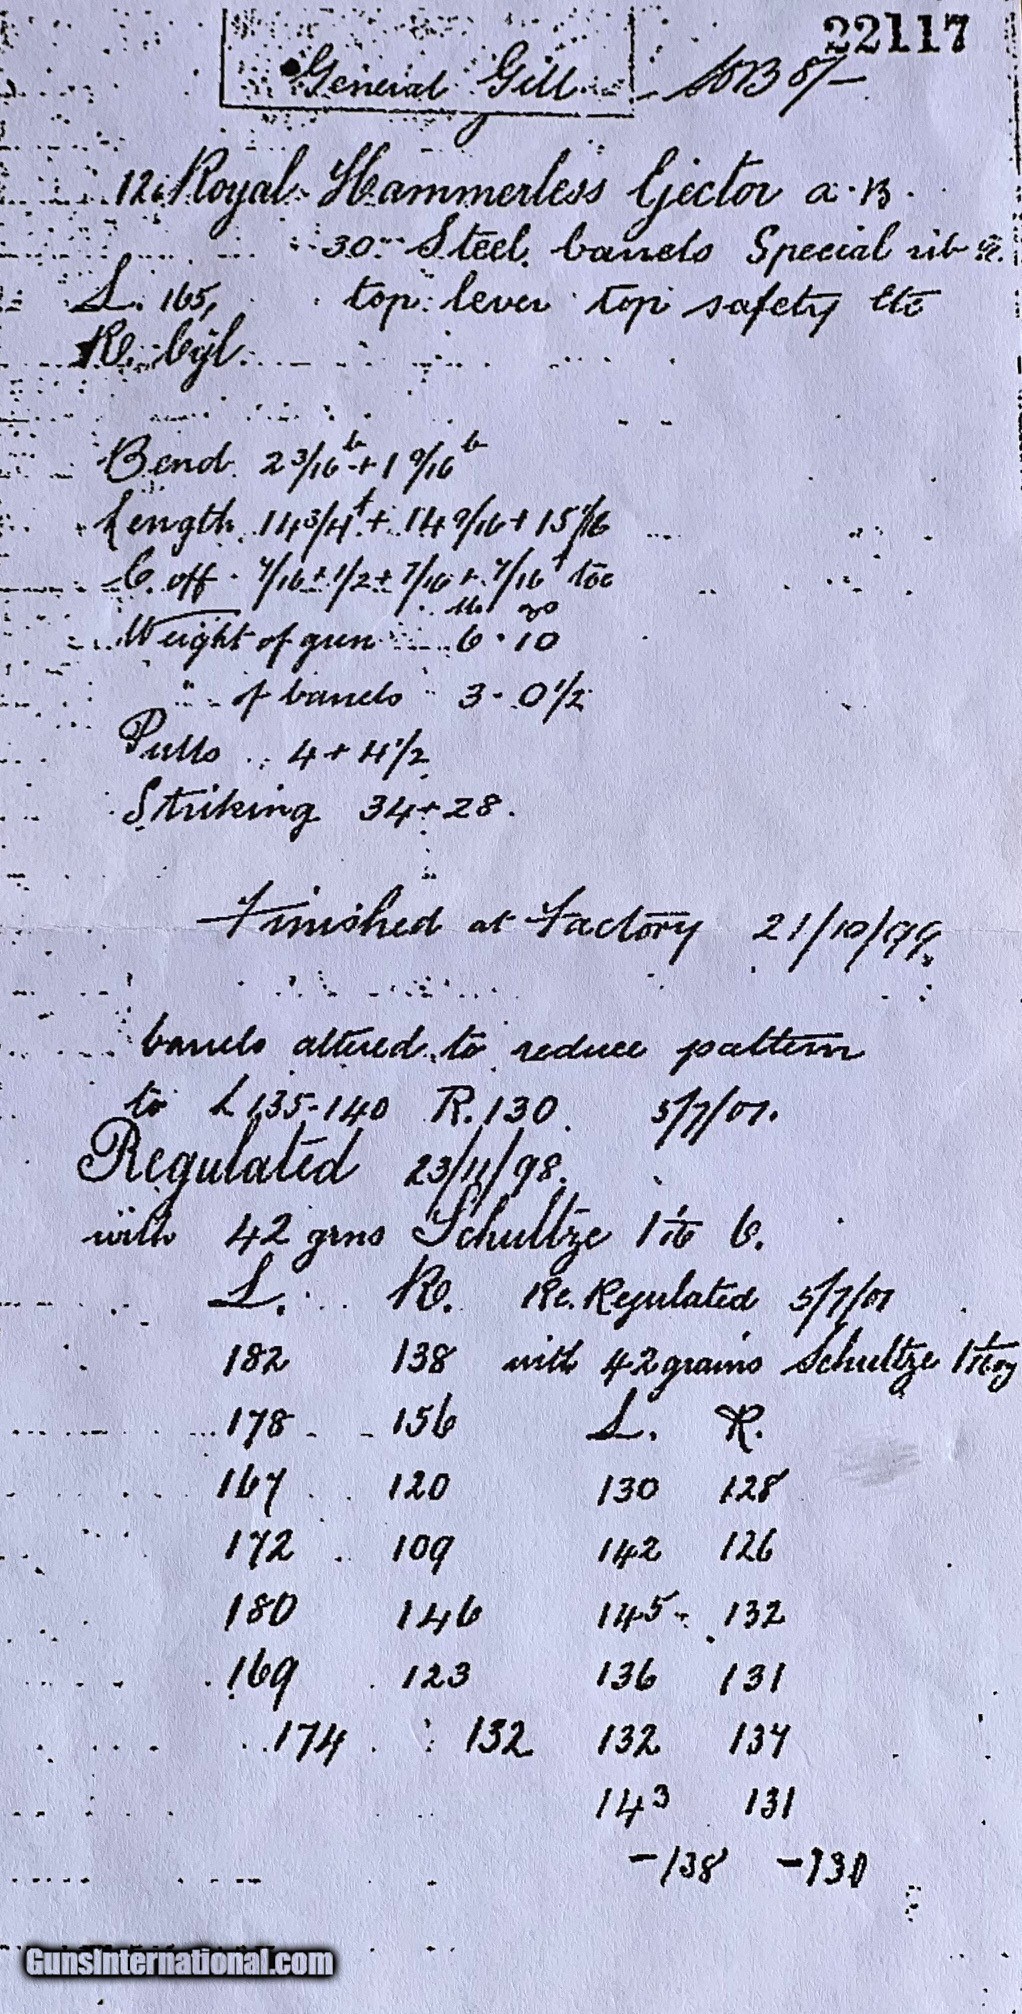 22117
General Gill
12. Royal Hammerless Ejector a. B.
30" Steel barrels Special rib &c.
L. 165, top lever top safety etc
R. Cyl.
Bend 2 3/16 b + 1 9/16 b
Length 14 3/4 + 14 9/16 + 15 1/16
C. off 7/16 + 1/2 + 7/16 + 7/16 toe
lbs ozs
Weight of gun 6 . 10
" of barrels 3 - 0 1/2
Pulls 4 + 4 1/2
Striking 34 + 28.
Finished at Factory 21/10/99.
barrels altered to reduce pattern
to L 135-140 R. 130. 5/7/01.
Regulated 23/11/98.
with 42 grns Schultze 1 6.
L. R. Re. Regulated 5/7/01
182 138 with 42 grains Schultze
178 156 L. R.
167 120 130 128
172 109 142 126
180 146 145 132
169 123 136 131
174 132 132 134
143 131
-138 -130
GunsInternational.com